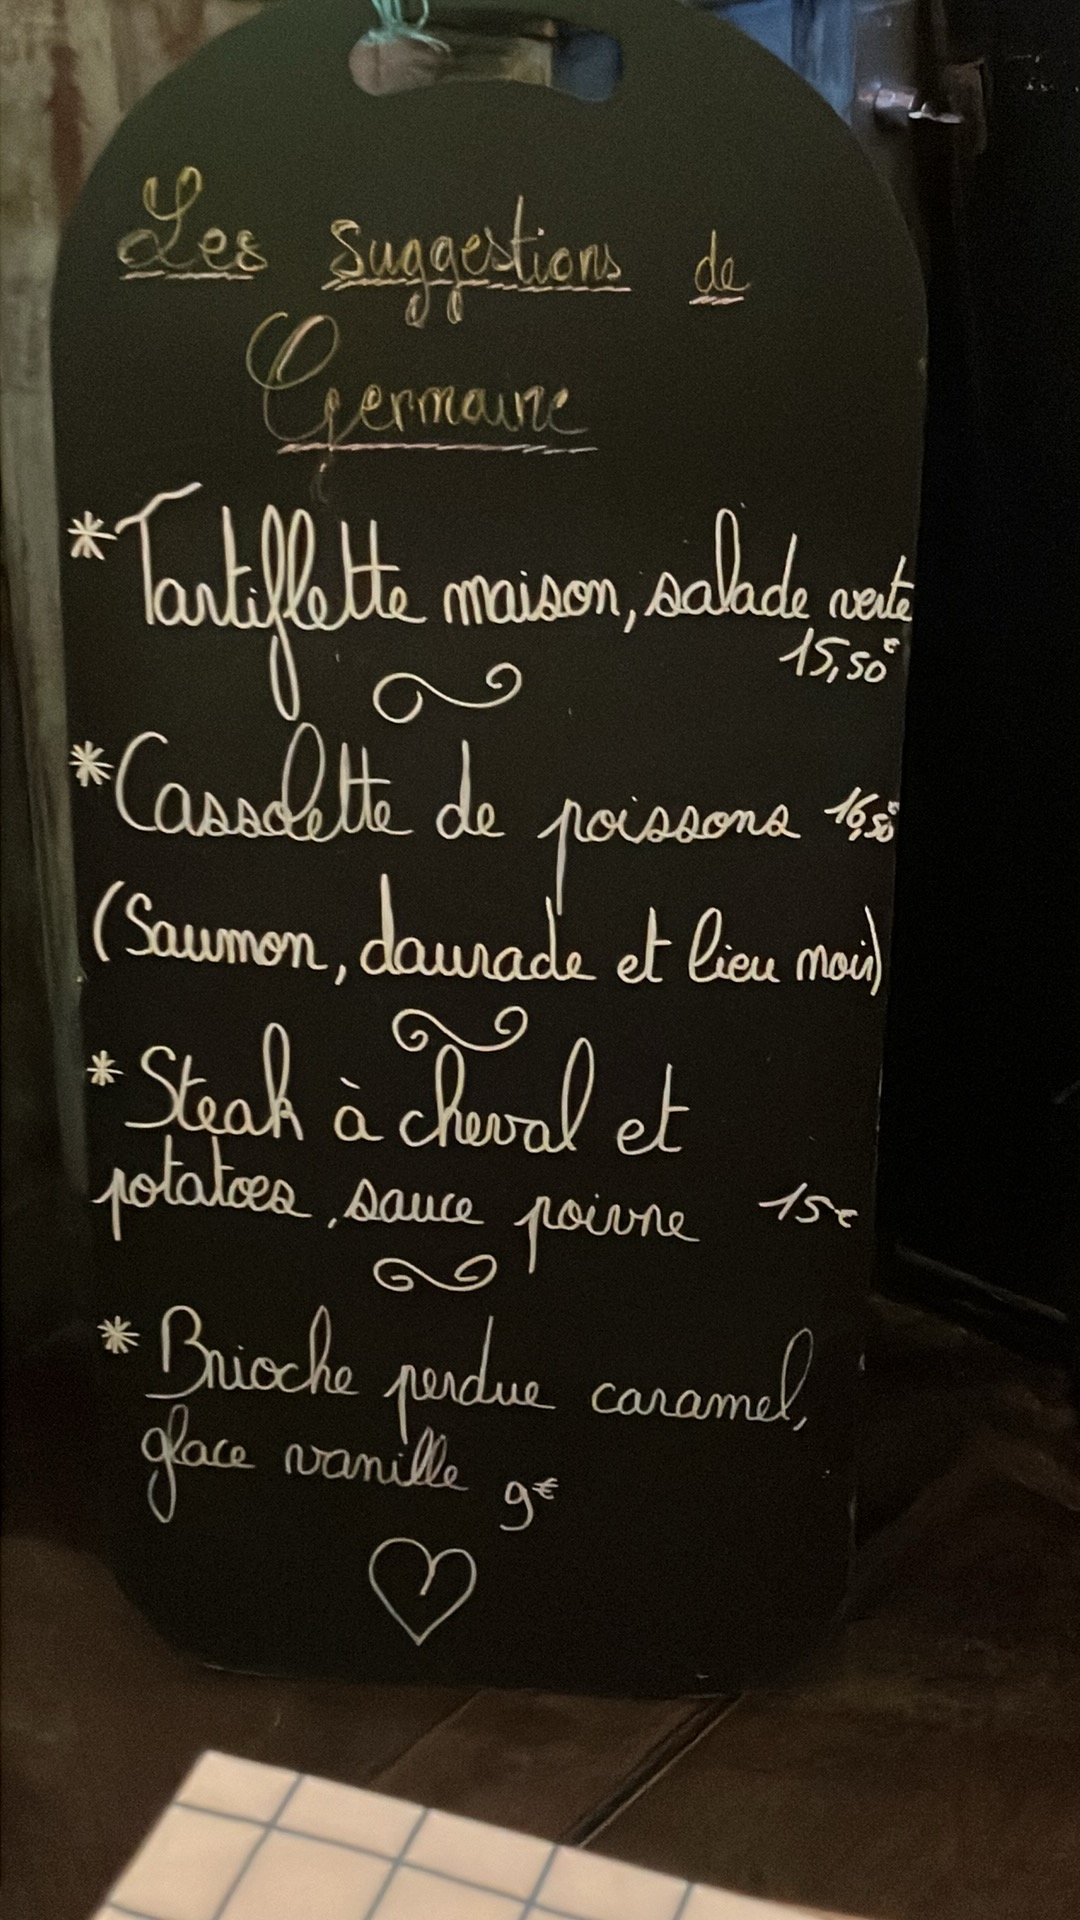 Les suggestions de
Germaine
*Tartiflette maison, salade verte
15,50€
*Cassolette de poissons 16,50€
(Saumon, daurade et lieu noir)
*Steak à cheval et
potatoes, sauce poivre 15€
*Brioche perdue caramel,
glace vanille 9€